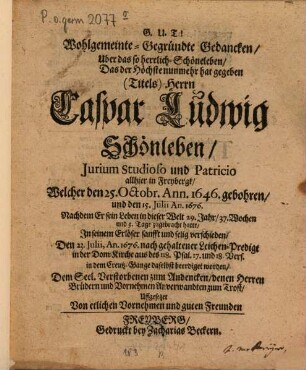 P.o.germ 2077 g
G. U. T!
Wohlgemeinte-Gegründte Gedancken/
Uber das so herrlich-Schöneleben/
Das der Höchste nunmehr hat gegeben
(Titels) Herrn
Caspar Ludwig
Schönleben/
Jurium Studioso und Patricio
allhier in Freybergk/
Welcher den 25. Octobr. Ann. 1646. gebohren/
und den 15. Julii An. 1676.
Nachdem Er sein Leben in dieser Welt 29. Jahr/ 37. Wochen
und 5. Tage zugebracht hatte/
In seinem Erlöser sanfft und seelig verschieden/
Den 23. Julii, An. 1676. nach gehaltener Leichen-Predigt
in der Dom Kirche aus des 118. Psal. 17. und 18. Vers.
in dem Creutz-Gange daselbst beerdiget worden/
Dem Seel. Verstorbenen zum Andencken/ denen Herren
Brüdern und Vornehmen Anverwandten zum Trost/
Uffgesetzet
Von etlichen Vornehmen und guten Freunden
FREYBERG/
Gedruckt bey Zacharias Beckern.